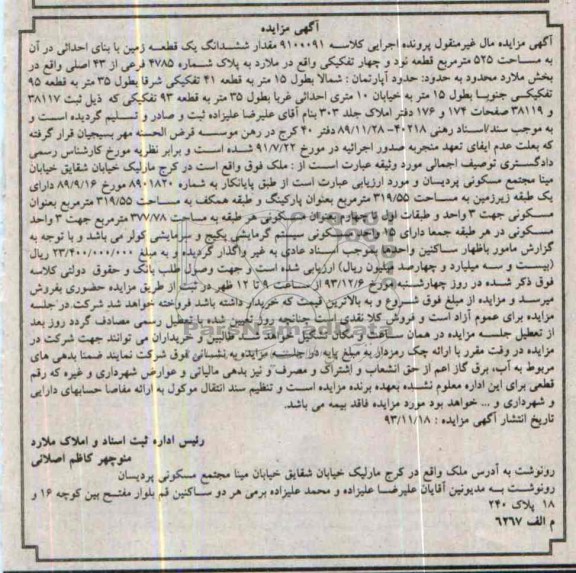 آگهی مزایده
آگهی مزایده مال غیرمنقول پرونده اجرایی کلاسه ۹۱۰۰۰۹۱ مقدار ششدانگ یک قطعه زمین با بنای احداثی در آن
به مساحت ۵۲۵ مترمربع قطعه نود و چهار تفکیکی واقع در ملارد به پلاک شماره ۴۷۸۵ فرعی از ۴۳ اصلی واقع در
بخش ملارد محدود به حدود: حدود آپارتمان : شمالا بطول ۱۵ متر به قطعه ۴۱ تفکیکی شرقا بطول ۳۵ متر به قطعه ۹۵
تفکیکی جنوبا بطول ۱۵ متر به خیابان ۱۰ متری احداثی غربا بطول ۳۵ متر به قطعه ۹۳ تفکیکی که ذیل ثبت ۳۸۱۱۷
و ۳۸۱۱۹ صفحات ۱۷۴ و ۱۷۶ دفتر املاک جلد ۳۰۳ بنام آقای علیرضا علیزاده ثبت و صادر و تسلیم گردیده است و
به موجب سند/اسناد رهنی ۴۰۲۱۸-۸۹/۱۱/۲۸ دفتر ۴۰ کرج در رهن موسسه قرض الحسنه مهر بسیجیان قرار گرفته
که بعلت عدم ایفای تعهد منجربه صدور اجرائیه در مورخ ۹۱/۷/۲۲ شده است و برابر نظریه مورخ کارشناس رسمی
دادگستری توصیف اجمالی مورد وثیقه عبارت است از : ملک فوق واقع است در کرج مارلیک خیابان شقایق خیابان
مینا مجتمع مسکونی پردیسان و مورد ارزیابی عبارت است از طبق پایانکار به شماره ۸۹۰۱۸۲۰ مورخ ۸۹/۹/۱۶ دارای
یک طبقه زیرزمین به مساحت ۳۱۹/۵۵ مترمربع بعنوان پارکینگ و طبقه همکف به مساحت ۳۱۹/۵۵ مترمربع بعنوان
مسکونی جهت ۳ واحد و طبقات اول تا چهارم بعنوان مسکونی هر طبقه به مساحت ۳۷۷/۷۸ مترمربع جهت ۳ واحد
مسکونی در هر طبقه جمعا دارای ۱۵ واحد مسکونی سیستم گرمایشی پکیج و سرمایشی کولر می باشد و با توجه به
گزارش مامور باظهار ساکنین واحدها بموجب اسناد عادی به غیر واگذار گردیده و به مبلغ ۲۳/۴۰۰/۰۰۰/۰۰۰ ریال
(بیست و سه میلیارد و چهارصد میلیون ریال) ارزیابی شده است و جهت وصول طلب بانک و حقوق دولتی کلاسه
فوق ذکر شده در روز چهارشنبه مورخ ۹۳/۱۲/۶ از ساعت ۹ تا ۱۲ ظهر در ثبت از طریق مزایده حضوری بفروش
میرسد و مزایده از مبلغ فوق شروع و به بالاترین قیمت که خریدار داشته باشد فروخته خواهد شد شرکت در جلسه
مزایده برای عموم آزاد است و فروش کلا نقدی است چنانچه روز تعیین شده با تعطیل رسمی مصادف گردد روز بعد
از تعطیل جلسه مزایده در همان ساعت و مکان تشکیل خواهد شد طالبین و خریداران می توانند جهت شرکت در
مزایده در وقت مقرر با ارائه چک رمزدار به مبلغ پایه در جلسه مزایده به نشانی فوق شرکت نمایند ضمنا بدهی های
مربوط به آب، برق گاز اعم از حق انشعاب و اشتراک و مصرف و نیز بدهی مالیاتی و عوارض شهرداری و غیره که رقم
قطعی برای این اداره معلوم نشده بعهده برنده مزایده است و تنظیم سند انتقال موکول به ارائه مفاصا حسابهای دارایی
و شهرداری و ... خواهد بود مورد مزایده فاقد بیمه می باشد.
تاریخ انتشار آگهی مزایده : ۹۳/۱۱/۱۸
رئیس اداره ثبت اسناد و املاک ملارد
منوچهر کاظم اصلانی
رونوشت به آدرس ملک واقع در کرج مارلیک خیابان شقایق خیابان مینا مجتمع مسکونی پردیسان
رونوشت به مدیونین آقایان علیرضا علیزاده و محمد علیزاده برمی هر دو ساکنین قم بلوار مفتح بین کوچه ۱۶ و
۱۸ پلاک ۲۴۰
م الف ۶۲۶۷
ParsNamadData